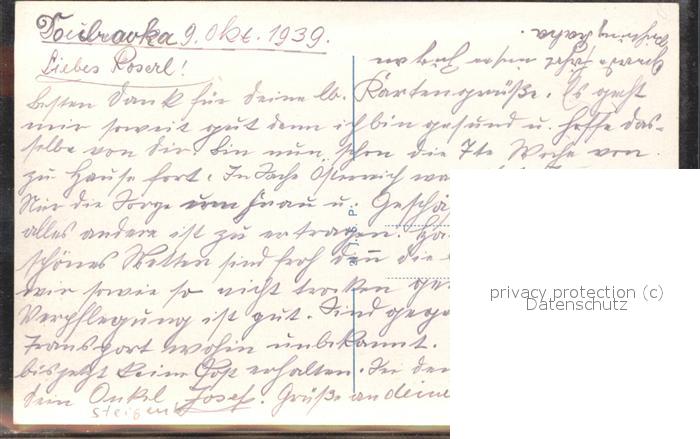 Doubravka 9. Okt. 1939.
Liebes Roserl!
Besten Dank für deine lb. Kartengrüße. Es geht
mir soweit gut denn ich bin gesund u. hoffe das-
selbe von dir. Bin nun schon die 7te Woche von
zu Hause fort. In
Nur die Sorge um Frau u. Geschä
alles andere ist zu ertragen.
schönes Wetter sind froh denn die
wir sowie so nicht trocken
Verpflegung ist gut. Sind
Transport wohin unbekannt.
bis jetzt keine Post erhalten. In
dein Onkel Josef. Grüße an deine
steigen
privacy protection (c)
Datenschutz